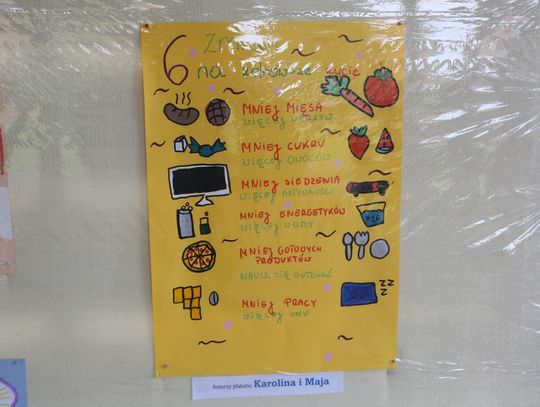 6 Zmian
na zdrowsze życie
MNIEJ MIĘSA
WIĘCEJ WARZYW
MNIEJ CUKRU
WIĘCEJ OWOCÓW
MNIEJ SIEDZENIA
WIĘCEJ AKTYWNOŚCI
MNIEJ ENERGETYKÓW
WIĘCEJ WODY
H2O
MNIEJ GOTOWYCH
PRODUKTÓW
NAUCZ SIĘ GOTOWAĆ
MNIEJ PRACY
WIĘCEJ SNU
Z Z Z
Autorzy plakatu: Karolina i Maja